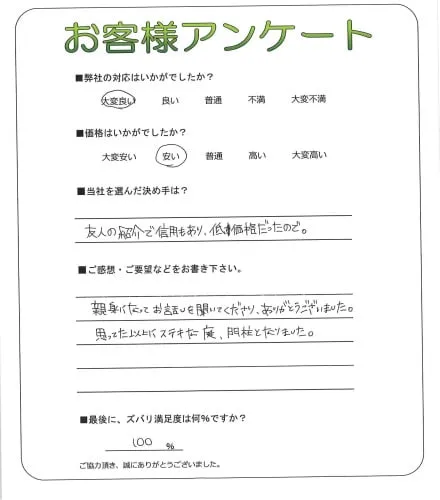 お客様アンケート
■弊社の対応はいかがでしたか？
大変良い 良い 普通 不満 大変不満
■価格はいかがでしたか？
大変安い 安い 普通 高い 大変高い
■当社を選んだ決め手は？
友人の紹介で信用もあり、低価格だったので。
■ご感想・ご要望などをお書き下さい。
親身になってお話しを聞いてくださり、ありがとうございました。
思ってた以上にステキな庭、門柱となりました。
■最後に、ズバリ満足度は何％ですか？
100 %
ご協力頂き、誠にありがとうございました。